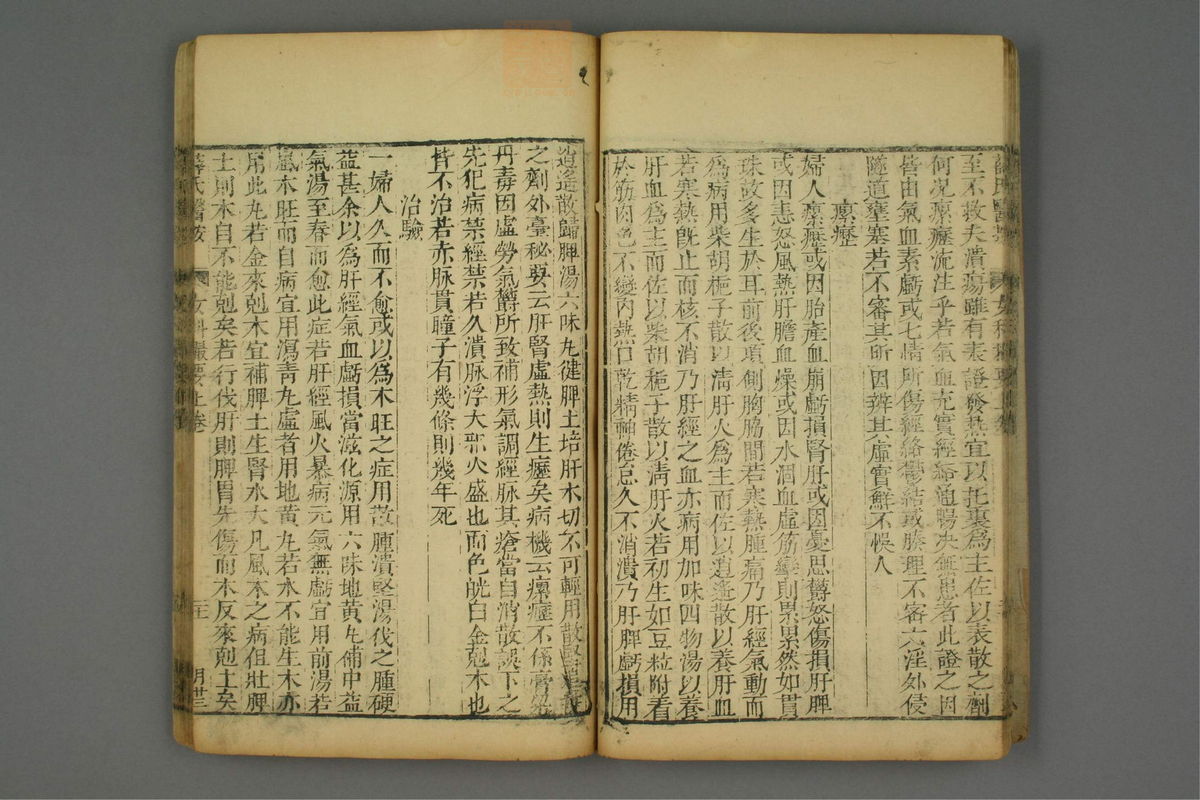 至不救夫潰瘍雖有表證發熱宜以托裏爲主佐以表散之劑
何况瘰癧流注乎若氣血充實經絡通暢决無患者此證之因
皆由氣血素虧或七情所傷經絡鬱結或腠理不密六淫外侵
隧道壅塞若不審其所因辨其虛實鮮不悞人
瘰癧
婦人瘰癧或因胎產血崩虧損腎肝或因憂思鬱怒傷損肝脾
或因恚怒風熱肝膽血燥或因水涸血虛筋攣則累累然如貫
珠故多生於耳前後項側胸脇間若寒熱腫痛乃肝經氣動而
爲病用柴胡梔子散以淸肝火爲主而佐以逍遙散以養肝血
若寒熱旣止而核不消乃肝經之血亦病用加味四物湯以養
肝血爲主而佐以柴胡梔子散以淸肝火若初生如豆粒附着
於筋肉色不變內熱口乾精神倦怠久不消潰乃肝脾虧損用
逍遙散歸脾湯六味丸健脾土培肝木切不可輕用散堅追毒
之劑外臺秘要云肝腎虛熱則生癧矣病機云瘰癧不係膏粱
丹毒因虛勞氣鬱所致補形氣調經脉其瘡當自消散誤下之
先犯病禁經禁若久潰脉浮大邪火盛也面色㿠白金剋木也
皆不治若赤脉貫瞳子有幾條則幾年死
治驗
一婦人久而不愈或以爲木旺之症用散腫潰堅湯伐之腫硬
益甚余以爲肝經氣血虧損當滋化源用六味地黃丸補中益
氣湯至春而愈此症若肝經風火暴病元氣無虧宜用前湯若
風木旺而自病宜用瀉靑丸虛者用地黃丸若水不能生木亦
用此丸若金來剋木宜補脾土生腎水大凡風木之病但壯脾
土則木自不能剋矣若行伐肝則脾胃先傷而木反來剋土矣
薛氏醫按 女科撮要上卷